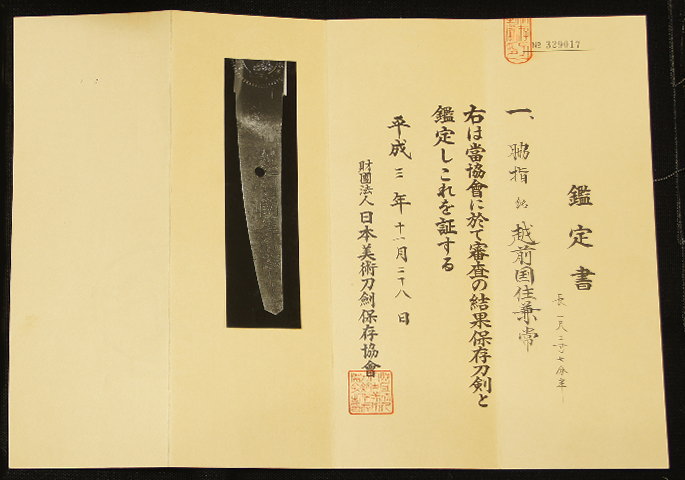 № 329017
鑑定書
一、脇指 銘 越前国住兼常
長 一尺三寸七分半
右は當協會に於て審査の結果保存刀剣と
鑑定しこれを証する
平成三年十一月二十八日
財團法人日本美術刀劍保存協會